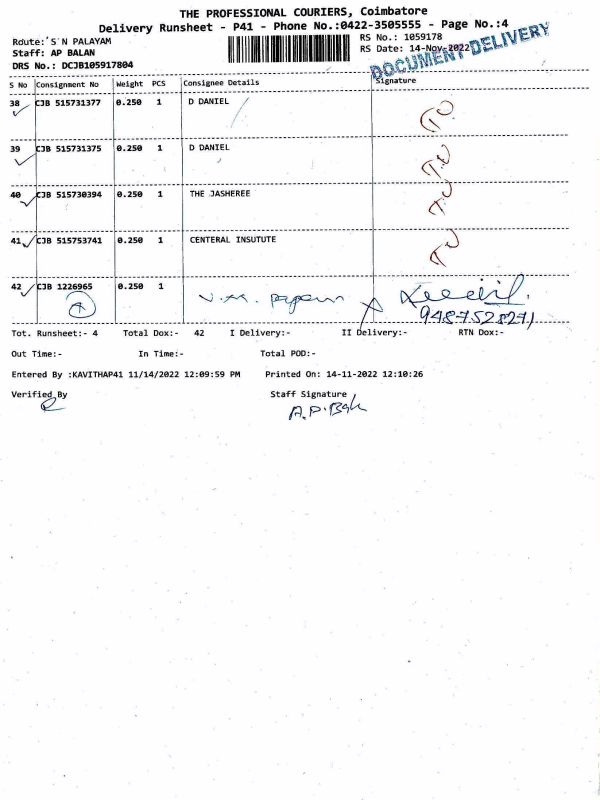 THE PROFESSIONAL COURIERS, Coimbatore
Delivery Runsheet - P41 - Phone No.:0422-3505555 - Page No.:4
Route: S N PALAYAM
RS No.: 1059178
Staff: AP BALAN
RS Date: 14-Nov-2022
DOCUMENT DELIVERY
DRS No.: DCJB105917804
S No Consignment No Weight PCS Consignee Details Signature
38 CJB 515731377 0.250 1 D DANIEL
39 CJB 515731375 0.250 1 D DANIEL
40 CJB 515730394 0.250 1 THE JASHEREE
41 CJB 515753741 0.250 1 CENTERAL INSUTUTE
42 CJB 1226965 0.250 1
9487752827)
Tot. Runsheet:- 4 Total Dox:- 42 I Delivery:- II Delivery:- RTN Dox:-
Out Time:- In Time:- Total POD:-
Entered By :KAVITHAP41 11/14/2022 12:09:59 PM Printed On: 14-11-2022 12:10:26
Verified By Staff Signature